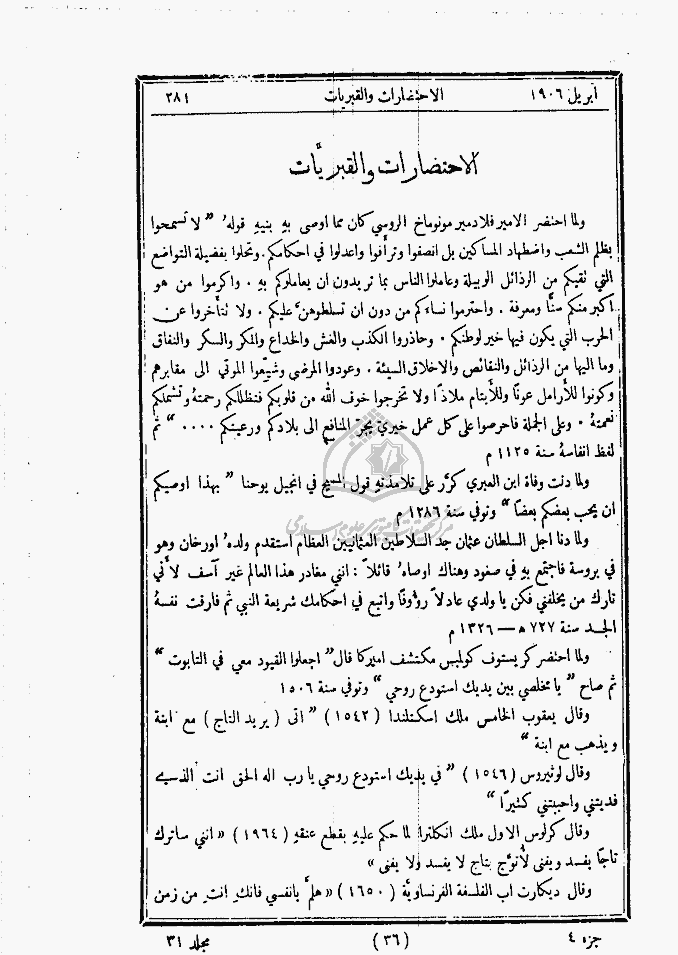 ابريل ١٩٠٦ الاحتضارات والقبريات ٢٨١
الاحتضارات والقبريَّات
ولما احتضر الامير فلاديمير مونوماخ الروسي كان مما اوصى بهِ بنيهِ قولهُ " لا تسمحوا
بظلم الشعب واضطهاد المساكين بل انصفوا وترأفوا واعدلوا في احكامكم. وتحلوا بفضيلة التواضع
التي تقيكم من الرذائل الوبيلة وعاملوا الناس بما تريدون ان يعاملوكم بهِ . واكرموا من هو
اكبر منكم سنًّا ومعرفة . واحترموا نساءكم من دون ان تسلطوهنَّ عليكم . ولا تتأخروا عن
الحرب التي يكون فيها خير لوطنكم . وحاذروا الكذب والغش والخداع والمكر والسكر والنفاق
وما اليها من الرذائل والنقائص والاخلاق السيئة . وعودوا المرضى وشيّعوا الموتى الى مقابرهم
وكونوا للأرامل عونًا وللأيتام ملاذًا ولا تخرجوا خوف الله من قلوبكم فتظللكم رحمتهُ وتشملكم
نعمتهُ . وعلى الجملة فاحرصوا على كل عمل خيري يجرّ المنافع الى بلادكم ورعيتكم .... " ثم
لفظ انفاسهُ سنة ١١٢٥ م
ولما دنت وفاة ابن العبري كرَّر على تلامذتهِ قول المسيح في انجيل يوحنا " بهذا اوصيكم
ان يحب بعضكم بعضًا " وتوفي سنة ١٢٨٦ م
مركز تحقيقات كامپيوتری علوم اسلامی
ولما دنا اجل السلطان عثمان جد السلاطين العثمانيين العظام استقدم ولدهُ اورخان وهو
في بروسة فاجتمع بهِ في صغود وهناك اوصاهُ قائلاً : انني مغادر هذا العالم غير آسف لأني
تارك من يخلفني فكن يا ولدي عادلاً رؤوفًا واتبع في احكامك شريعة النبي ثم فارقت نفسهُ
الجسد سنة ٧٢٧ ھ — ١٣٢٦ م
ولما احتضر كريستوف كولمبس مكتشف اميركا قال " اجعلوا القيود معي في التابوت "
ثم صاح " يا مخلصي بين يديك استودع روحي " وتوفي سنة ١٥٠٦
وقال يعقوب الخامس ملك اسكتلندا ( ١٥٤٢ ) " اتى ( يريد التاج ) مع ابنة
ويذهب مع ابنة "
وقال لوثيروس ( ١٥٤٦ ) " في يديك استودع روحي يا رب اله الحق انت الذي
فديتني واحببتني كثيرًا "
وقال كرلوس الاول ملك انكلترا لما حكم عليهِ بقطع عنقهِ ( ١٩٦٤ ) « انني ساترك
تاجًا يفسد ويفنى لأتوَّج بتاج لا يفسد ولا يفنى »
وقال ديكارت اب الفلسفة الفرنساويَّة ( ١٦٥٠ ) « هلمَّ يا نفسي فانكِ انتِ من زمن
جزء ٤ (٣٦) مجلد ٣١